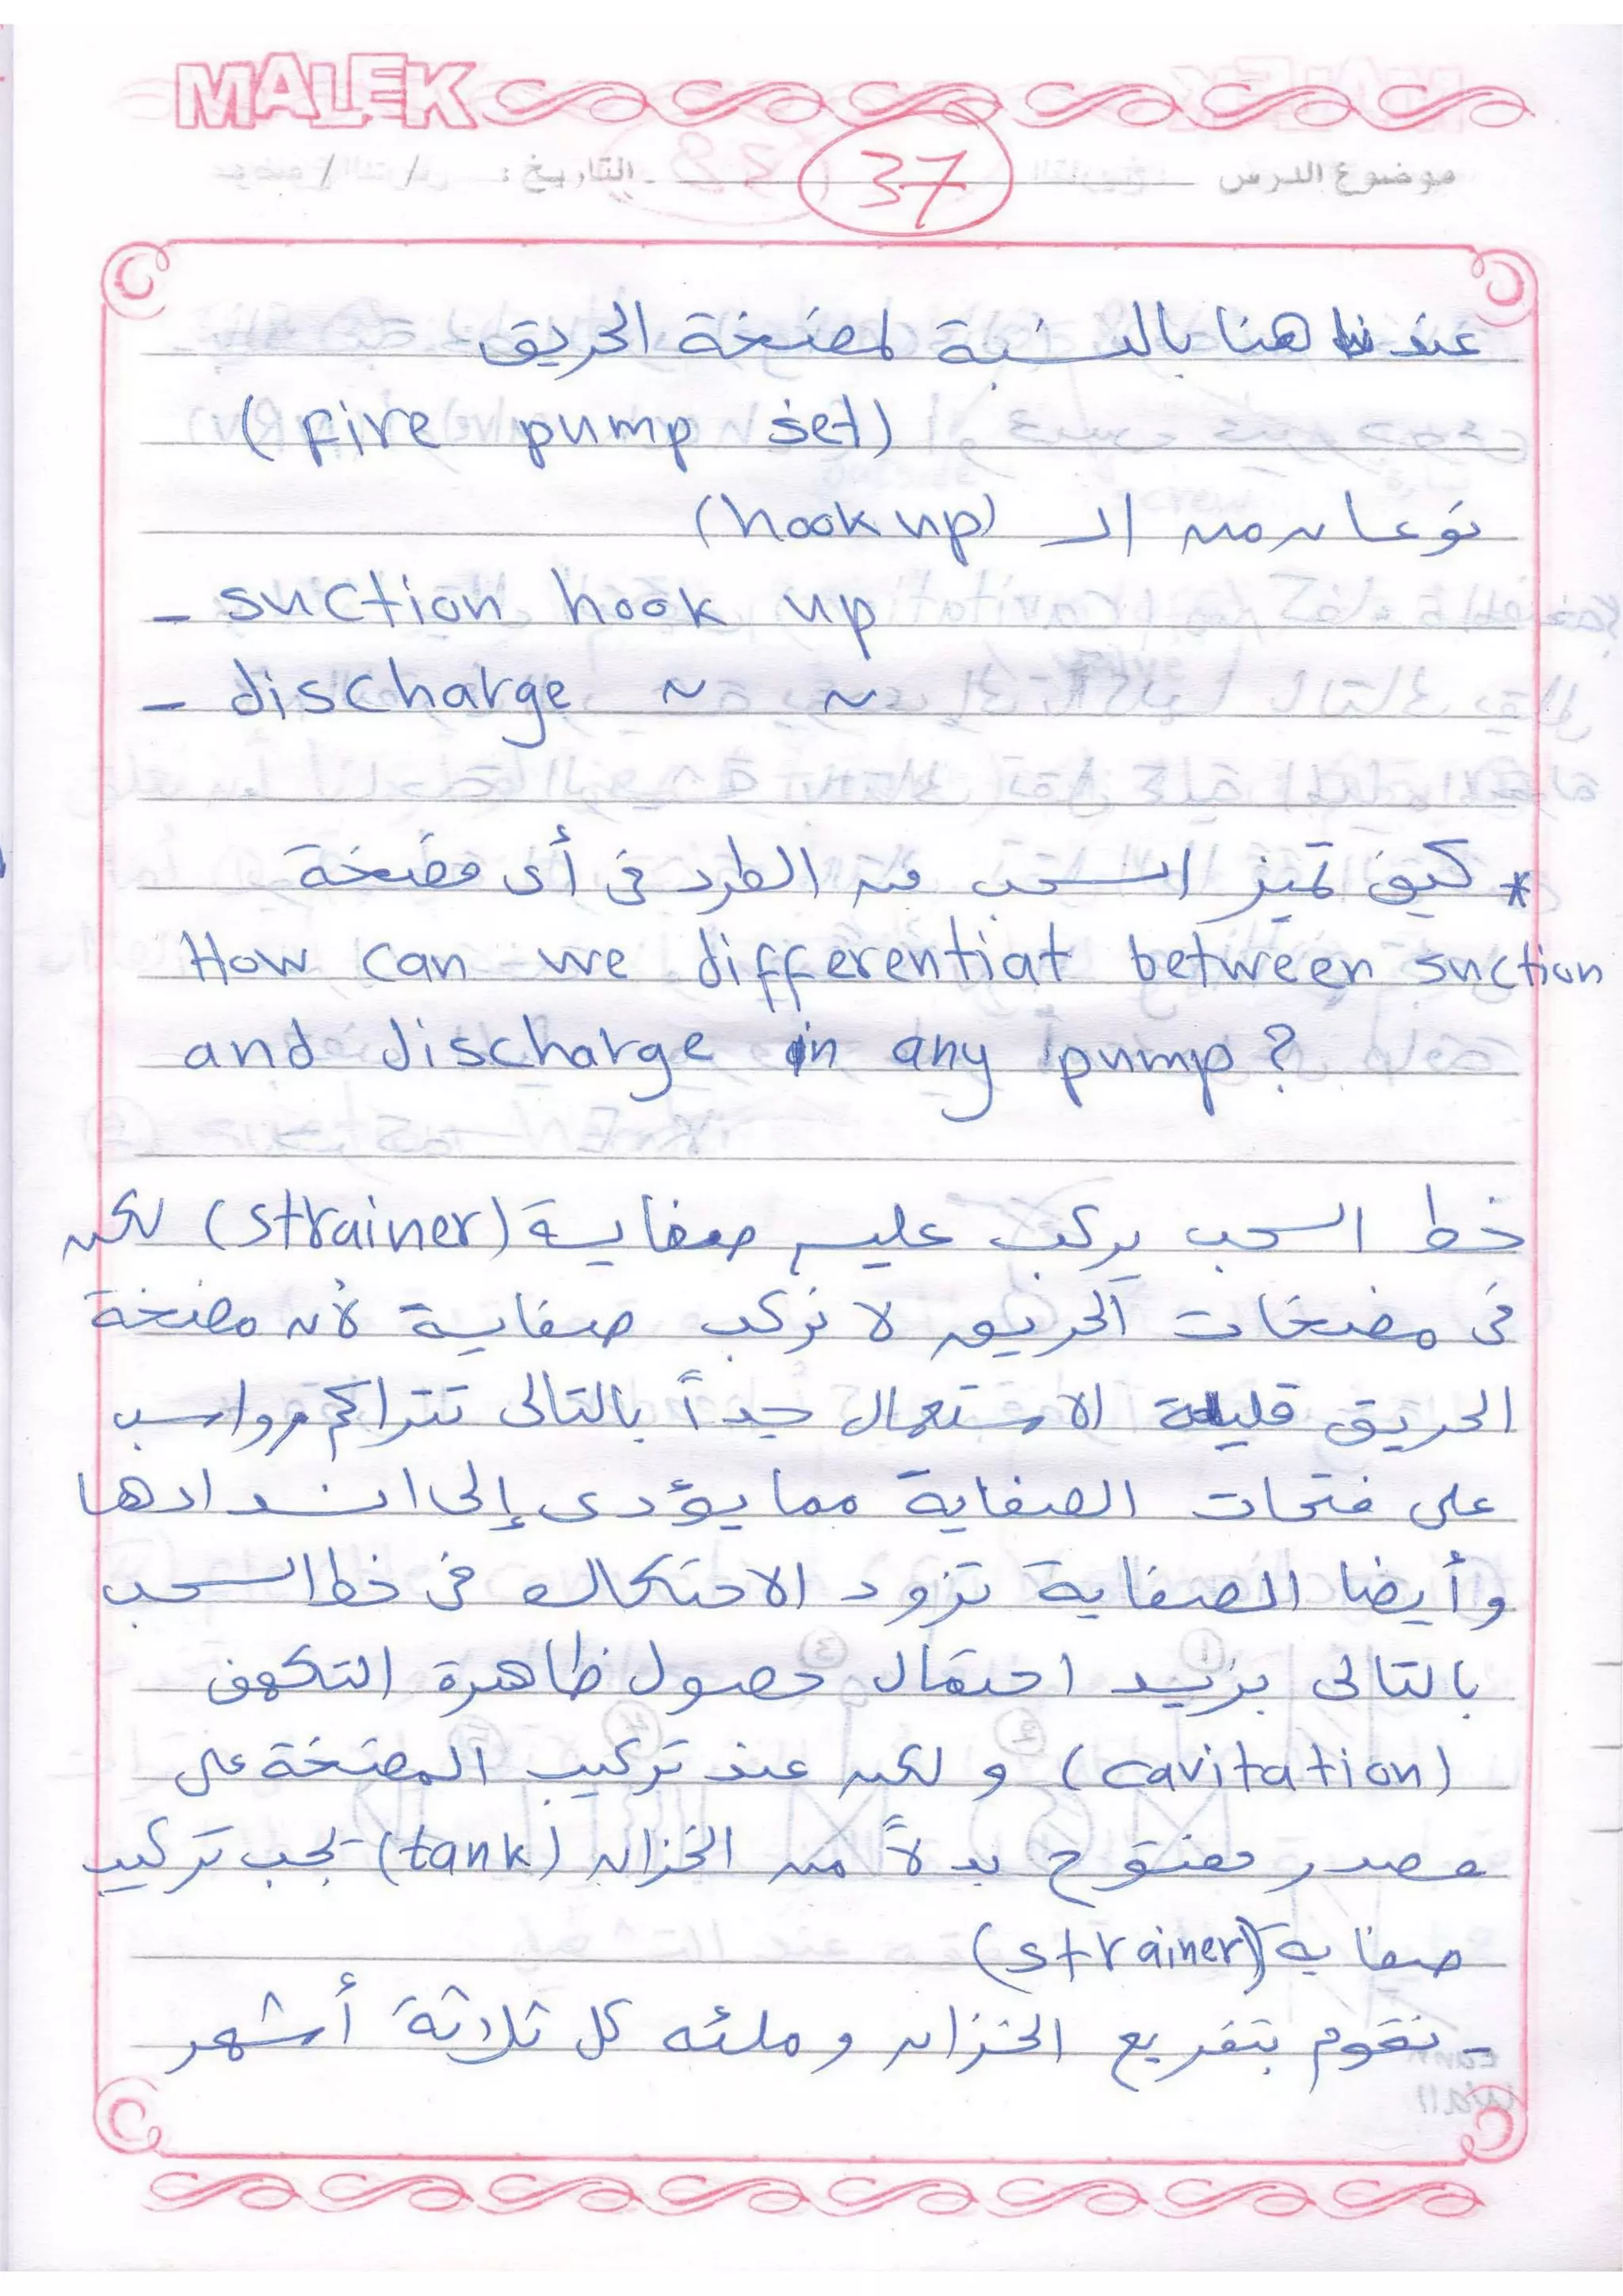 MALEK
موضوع الدرس 37 التاريخ : / /
عندنا هنا بالنسبة لمضخة الحريق
(fire pump set)
نوعان من الـ (hook up)
- suction hook up
- discharge ~ ~
* كيف تميز السحب من الطرد فى أى مضخة
How can we differentiat between suction
and discharge in any pump?
خط السحب يركب عليه صفاية (strainer) لكن
فى مضخات الحريق لا نركب صفاية لأن مضخة
الحريق قليلة الاستعمال جداً بالتالى تتراكم رواسب
على فتحات الصفاية مما يؤدى إلى انسدادها
وأيضا الصفاية تزود الاحتكاك فى خط السحب
بالتالى يزيد احتمال حصول ظاهرة التكهف
(cavitation) و لكن عند تركيب المضخة على
مصدر مفتوح بدلاً من الخزان (tank) يجب تركيب
صفاية (strainer)
- نقوم بتفريع الخزان و ملئه كل ثلاثة أشهر